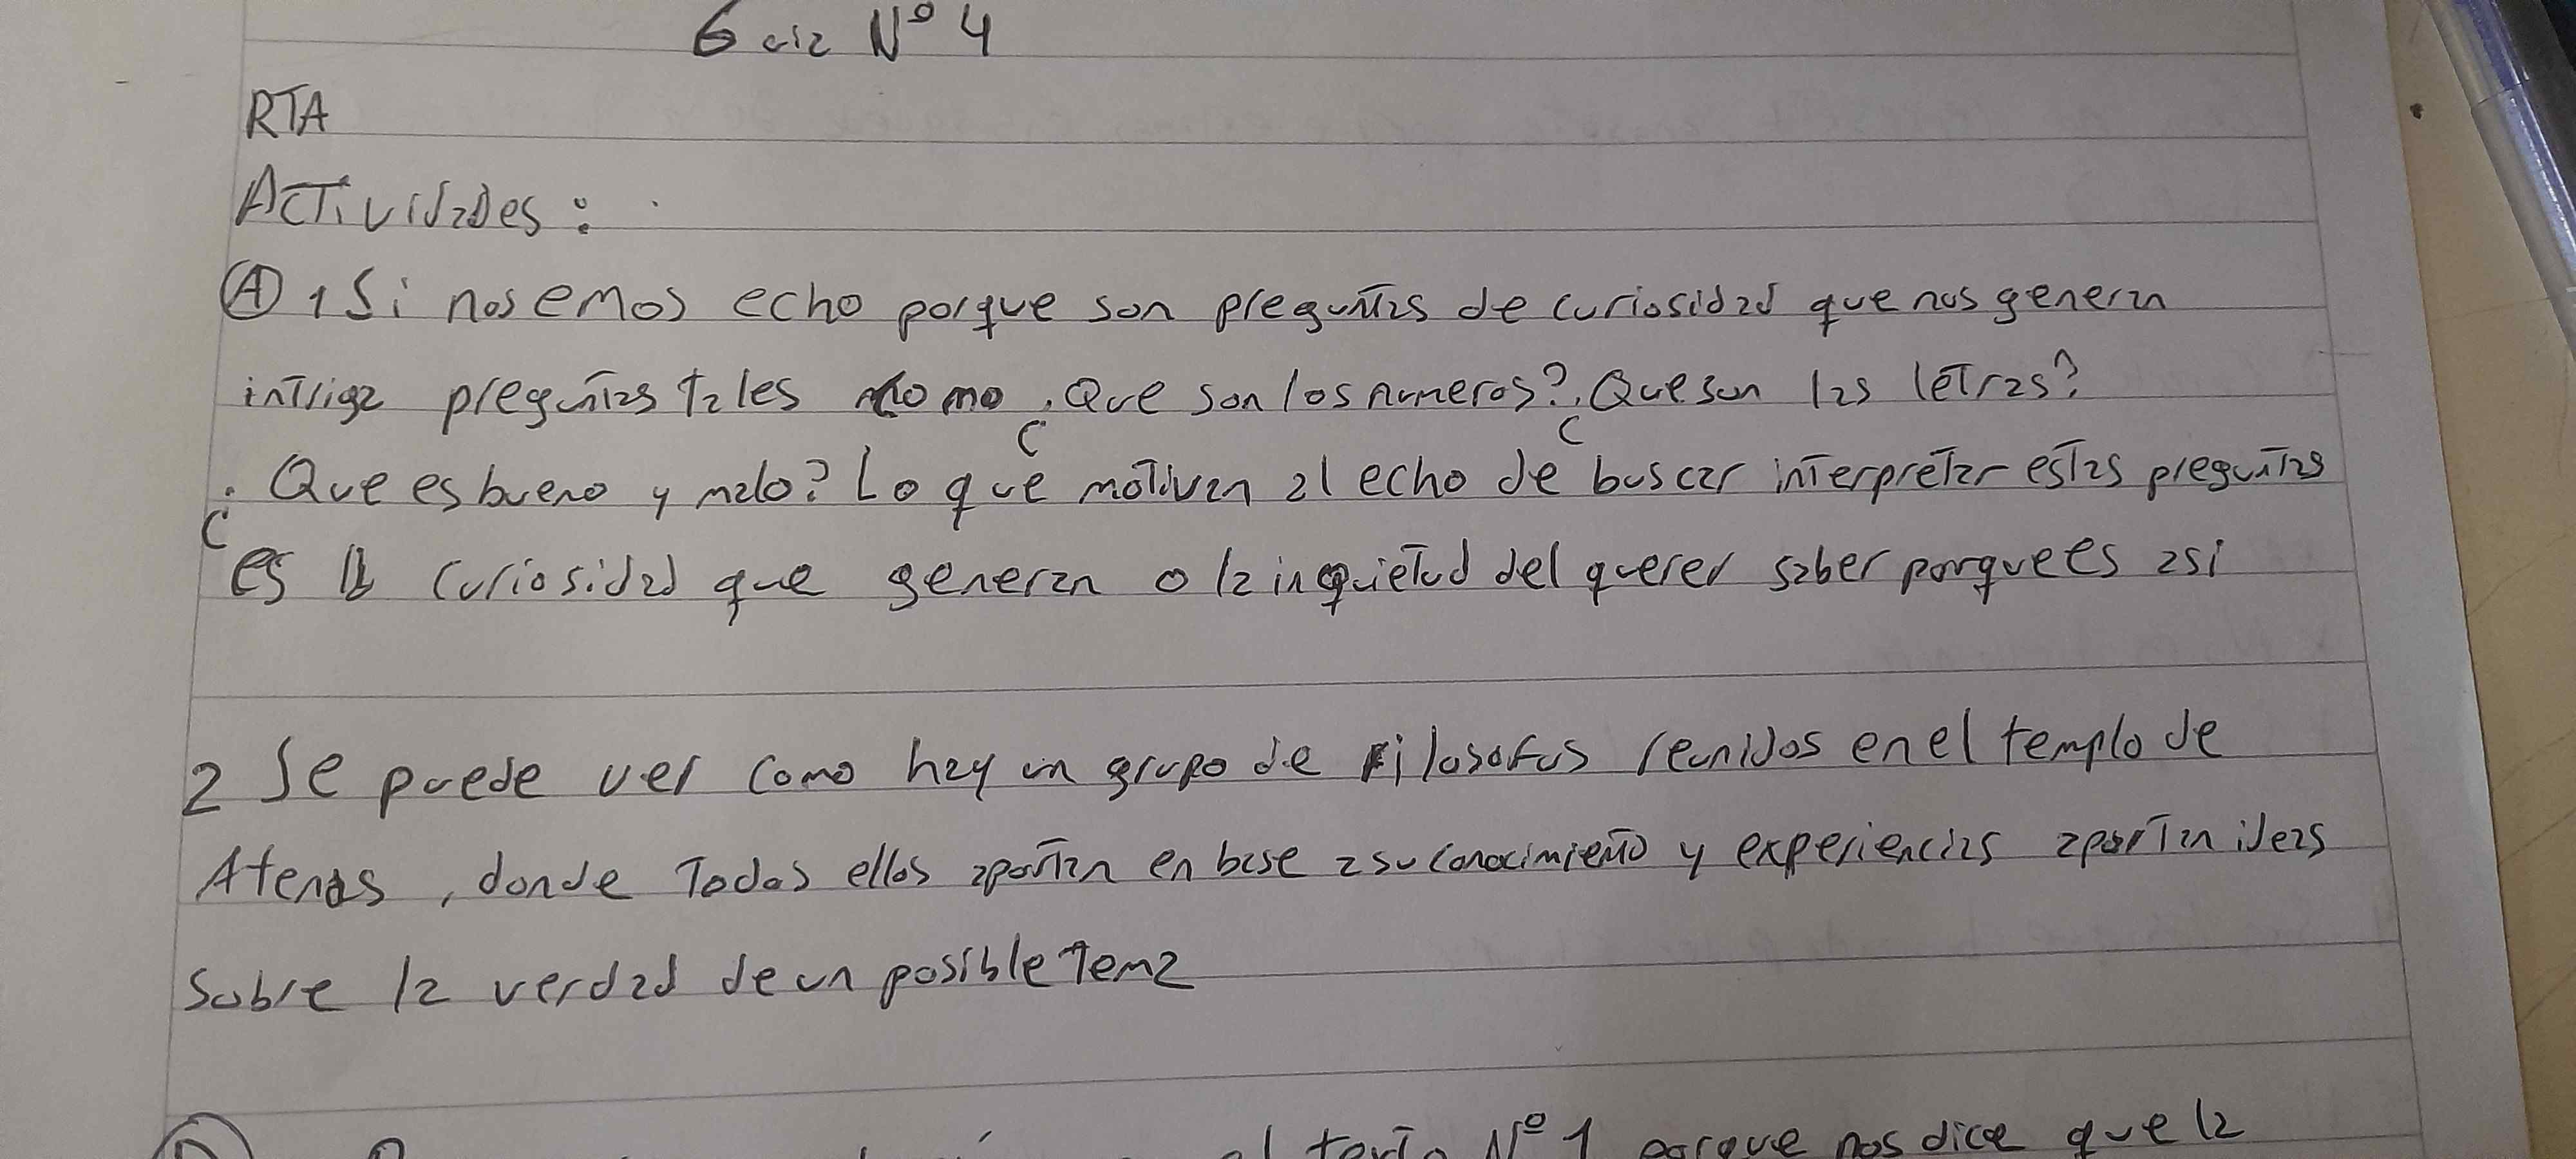 Guia Nº 4
RTA
Actividades:
A 1 Si nos emos echo porque son preguntas de curiosidad que nos generan
intriga preguntas tales como ¿Que son los numeros? ¿Que son las letras?
¿Que es bueno y malo? Lo que motivan al echo de buscar interpretar estas preguntas
es la curiosidad que generan o la inquietud del querer saber porque es asi
2 Se puede ver como hay un grupo de filosofos reunidos en el templo de
Atenas, donde todos ellos aportan en base a su conocimiento y experiencias aportan ideas
sobre la verdad de un posible tema
el texto Nº 1 porque nos dice que la